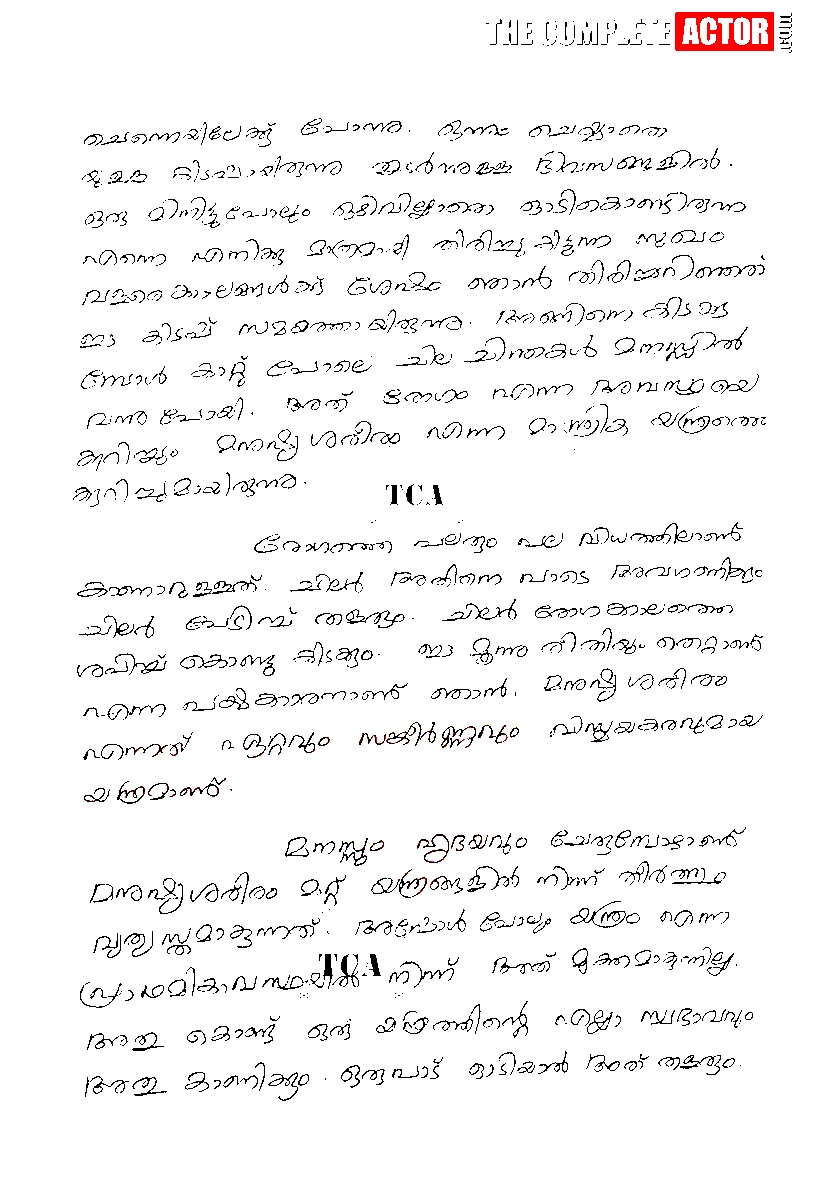 THE COMPLETE ACTOR
ചെന്നൈയിലേക്ക് പോന്നു. ഒന്നും ചെയ്യാതെ
കിടപ്പായിരുന്നു തുടർന്നുള്ള ദിവസങ്ങളിൽ.
ഒരു മിനിട്ടുപോലും ഒഴിവില്ലാതെ ഓടികൊണ്ടിരുന്ന
എന്നെ എനിക്കു മാത്രമായി തിരിച്ചു കിട്ടുന്ന സുഖം
വളരെകാലങ്ങൾക്ക് ശേഷം ഞാൻ തിരിച്ചറിഞ്ഞത്
ഈ കിടപ്പ് സമയത്തായിരുന്നു. അങ്ങിനെ കിടക്കു
മ്പോൾ കാറ്റ് പോലെ ചില ചിന്തകൾ മനസ്സിൽ
വന്നുപോയി. അത് രോഗം എന്ന അവസ്ഥയെ
കുറിച്ചും മനുഷ്യശരീരം എന്ന മാന്ത്രിക യന്ത്രത്തെ
കുറിച്ചുമായിരുന്നു.
TCA
രോഗത്തെ പലരും പല വിധത്തിലാണ്
കാണാറുള്ളത്. ചിലർ അതിനെ പാടെ അവഗണിക്കും
ചിലർ പേടിച്ച് തളരും. ചിലർ രോഗകാലത്തെ
ശപിച്ച് കൊണ്ടു കിടക്കും. ഈ മൂന്നു രീതിയും തെറ്റാണ്
എന്ന പക്ഷകാരനാണ് ഞാൻ. മനുഷ്യശരീരം
എന്നത് ഏറ്റവും സങ്കീർണ്ണവും വിസ്മയകരവുമായ
യന്ത്രമാണ്.
മനസ്സും ഹൃദയവും ചേരുമ്പോഴാണ്
മനുഷ്യശരീരം മറ്റ് യന്ത്രങ്ങളിൽ നിന്ന് തീർത്തും
വ്യത്യസ്തമാകുന്നത്. അപ്പോൾ പോലും യന്ത്രം എന്ന
പ്രാഥമികാവസ്ഥയിൽ നിന്ന് അത് മുക്തമാകുന്നില്ല.
TCA
അതു കൊണ്ട് ഒരു യന്ത്രത്തിന്റെ എല്ലാ സ്വഭാവവും
അതു കാണിക്കും. ഒരുപാട് ഓടിയാൽ അത് തളരും.